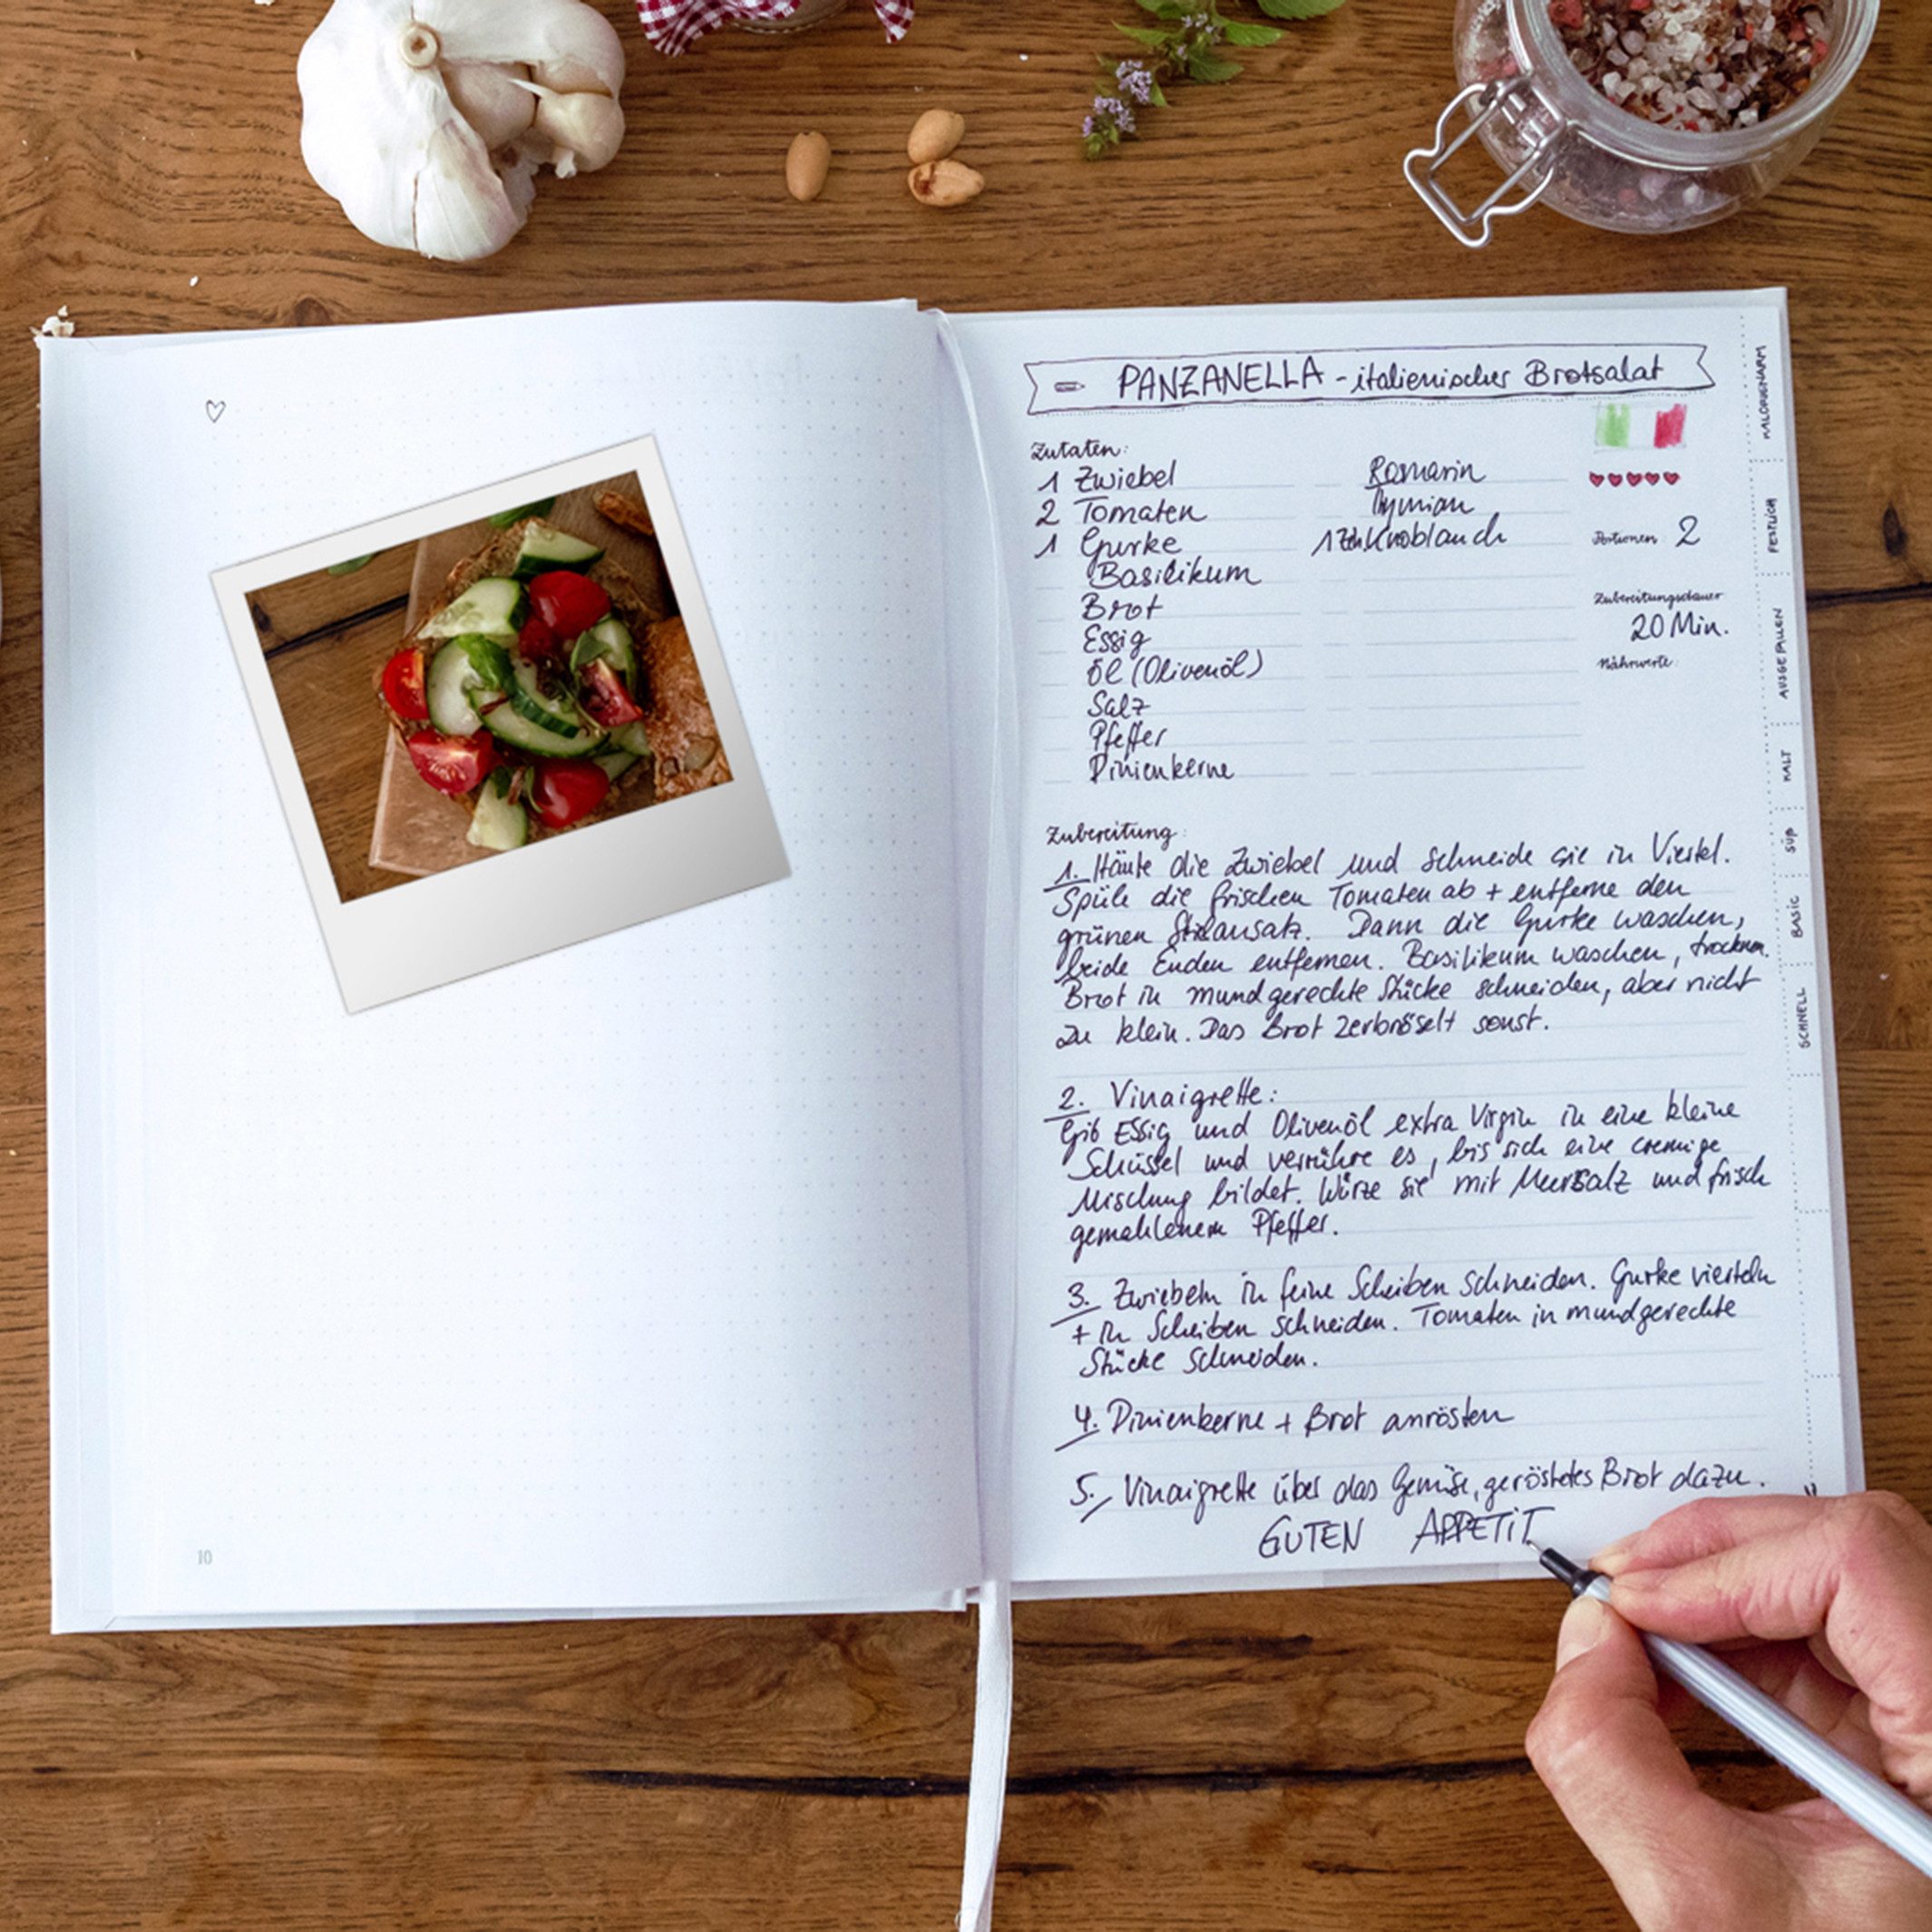 10
PANZANELLA - italienischer Brotsalat
Zutaten:
1 Zwiebel
2 Tomaten
1 Gurke
Basilikum
Brot
Essig
Öl (Olivenöl)
Salz
Pfeffer
Pinienkerne
Rosmarin
Tymian
1 Zeh. Knoblauch
Portionen 2
Zubereitungsdauer
20 Min.
Nährwerte:
Zubereitung:
1. Häute die Zwiebel und schneide sie in Viertel.
Spüle die frischen Tomaten ab + entferne den
grünen Stielansatz. Dann die Gurke waschen,
beide Enden entfernen. Basilikum waschen, trocknen.
Brot in mundgerechte Stücke schneiden, aber nicht
zu klein. Das Brot zerbröselt sonst.
2. Vinaigrette:
Gib Essig und Olivenöl extra Virgin in eine kleine
Schüssel und verrühre es, bis sich eine cremige
Mischung bildet. Würze sie mit Meersalz und frisch
gemahlenem Pfeffer.
3. Zwiebeln in feine Scheiben schneiden. Gurke vierteln
+ in Scheiben schneiden. Tomaten in mundgerechte
Stücke schneiden.
4. Pinienkerne + Brot anrösten
5. Vinaigrette über das Gemüse, geröstetes Brot dazu.
GUTEN APPETIT
KALORIENARM
FESTLICH
AUSGEFALLEN
KALT
SÜß
BASIC
SCHNELL